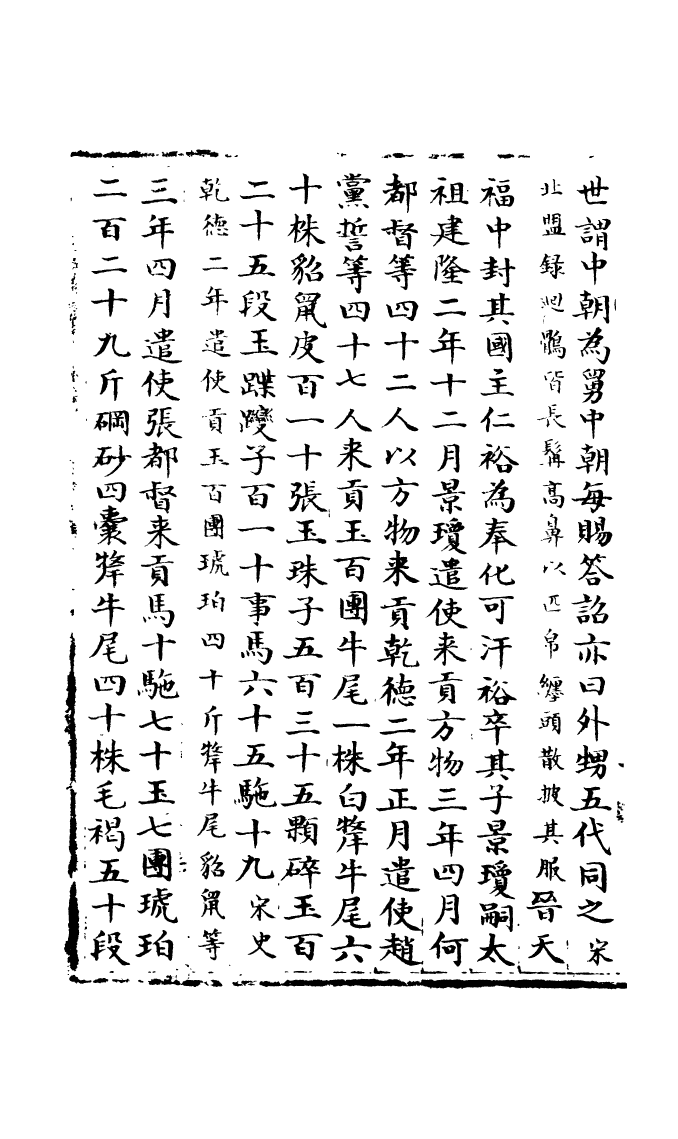 世謂中朝為舅中朝每賜答詔亦曰外甥五代同之宋
北盟録迴鶻皆長髯高鼻以匹帛纏頭散披其服晉天
福中封其國主仁裕為奉化可汗裕卒其子景瓊嗣太
祖建隆二年十二月景瓊遣使来貢方物三年四月何
都督等四十二人以方物来貢乾德二年正月遣使趙
黨誓等四十七人来貢玉百團牛尾一株白犛牛尾六
十株貂鼠皮百一十張玉珠子五百三十五顆碎玉百
二十五段玉蹀躞子百一十事馬六十五駞十九宋史
乾德二年遣使貢玉百團琥珀四十斤犛牛尾貂鼠等
三年四月遣使張都督来貢馬十駞七十玉七團琥珀
二百二十九斤碙砂四囊犛牛尾四十株毛褐五十段